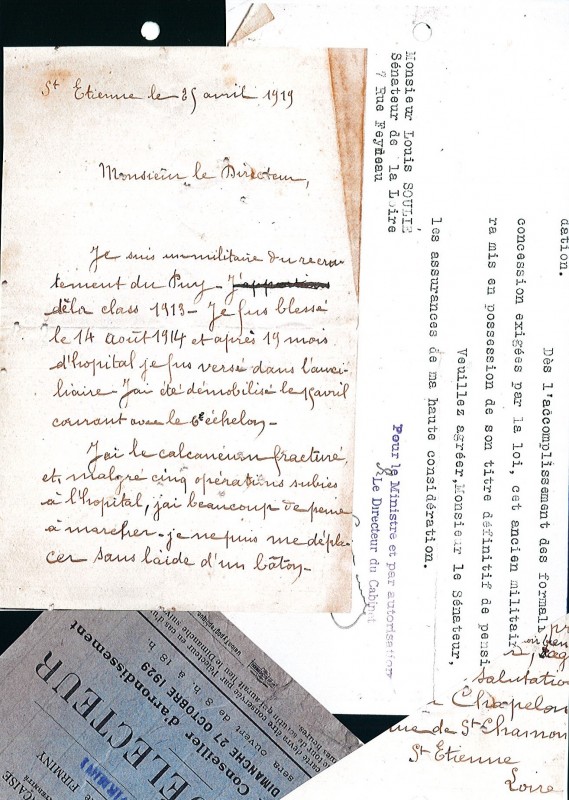 St Etienne le 25 avril 1919
Monsieur le Directeur,
Je suis un militaire du recru-
tement du Puy - J'appartiens
de la class 1913 - Je fus blessé
le 14 août 1914 et après 19 mois
d'hopital je fus versé dans l'auxi-
liaire - J'ai été démobilisé le 15 avril
courant avec le 6e échelon -
J'ai le calcanéum fracturé,
et, malgré cinq opérations subies
à l'hopital, j'ai beaucoup de peine
à marcher - je ne puis me dépla-
cer sans l'aide d'un bâton -
Monsieur Louis SOULIÉ
Sénateur de la Loire
7 Rue Feyneau
dation.
Dès l'accomplissement des formali
concession exigées par la loi, cet ancien militair
ra mis en possession de son titre définitif de pensi
Veuillez agréer, Monsieur le Sénateur,
les assurances de ma haute considération.
Pour le Ministre et par autorisation
Le Directeur du Cabinet
salutatio
Chapelon
ue de St Chamon
St Etienne
Loire
Conseiller d'arrondissement
DIMANCHE 27 OCTOBRE 1929
sera ouvert de 8 h. à 18 h.
ELECTEUR
FIRMINY